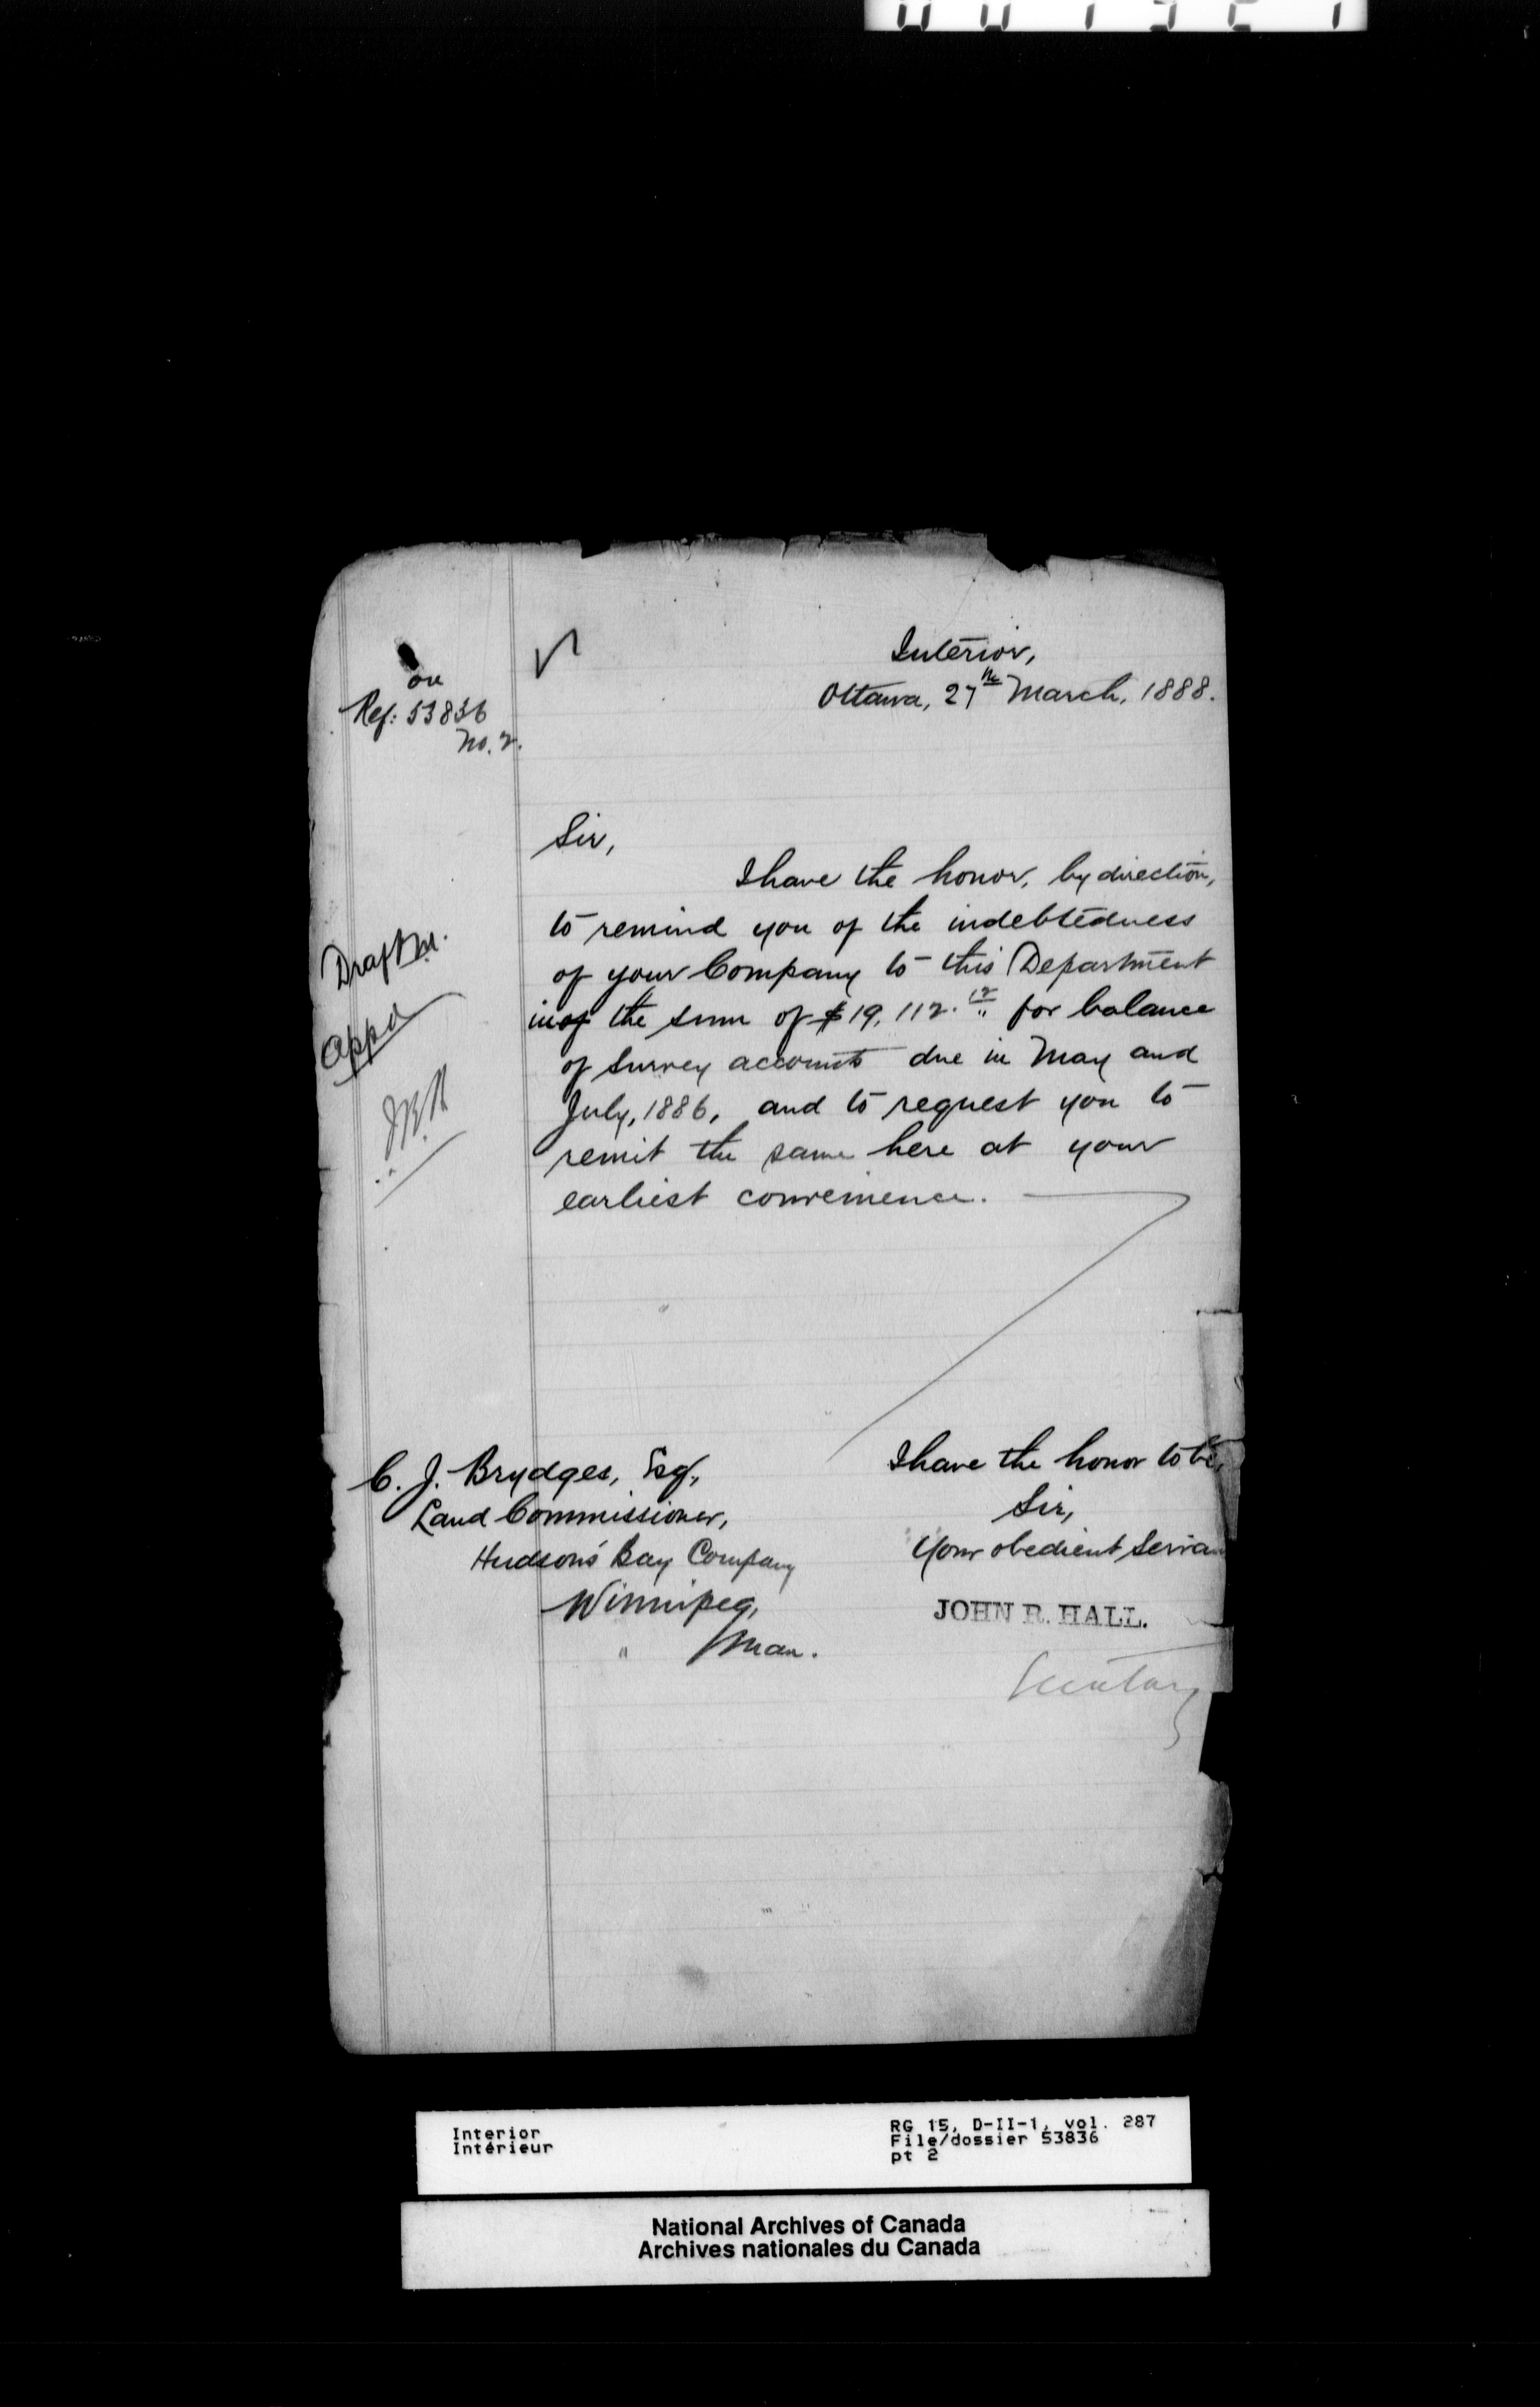 on
Ref: 53836
No. 2.
Interior,
Ottawa, 27th March, 1888.
Sir,
I have the honor, by direction,
to remind you of the indebtedness
of your Company to this Department
in the sum of $19,112.12 for balance
of survey accounts due in May and
July, 1886, and to request you to
remit the same here at your
earliest convenience.
Draft
Appd
I have the honor to be,
Sir,
Your obedient Servan
JOHN R. HALL.
Secretary
C. J. Brydges, Esq.,
Land Commissioner,
Hudson's Bay Company
Winnipeg,
Man.
Interior
Intérieur
RG 15, D-II-1, vol. 287
File/dossier 53836
pt 2
National Archives of Canada
Archives nationales du Canada